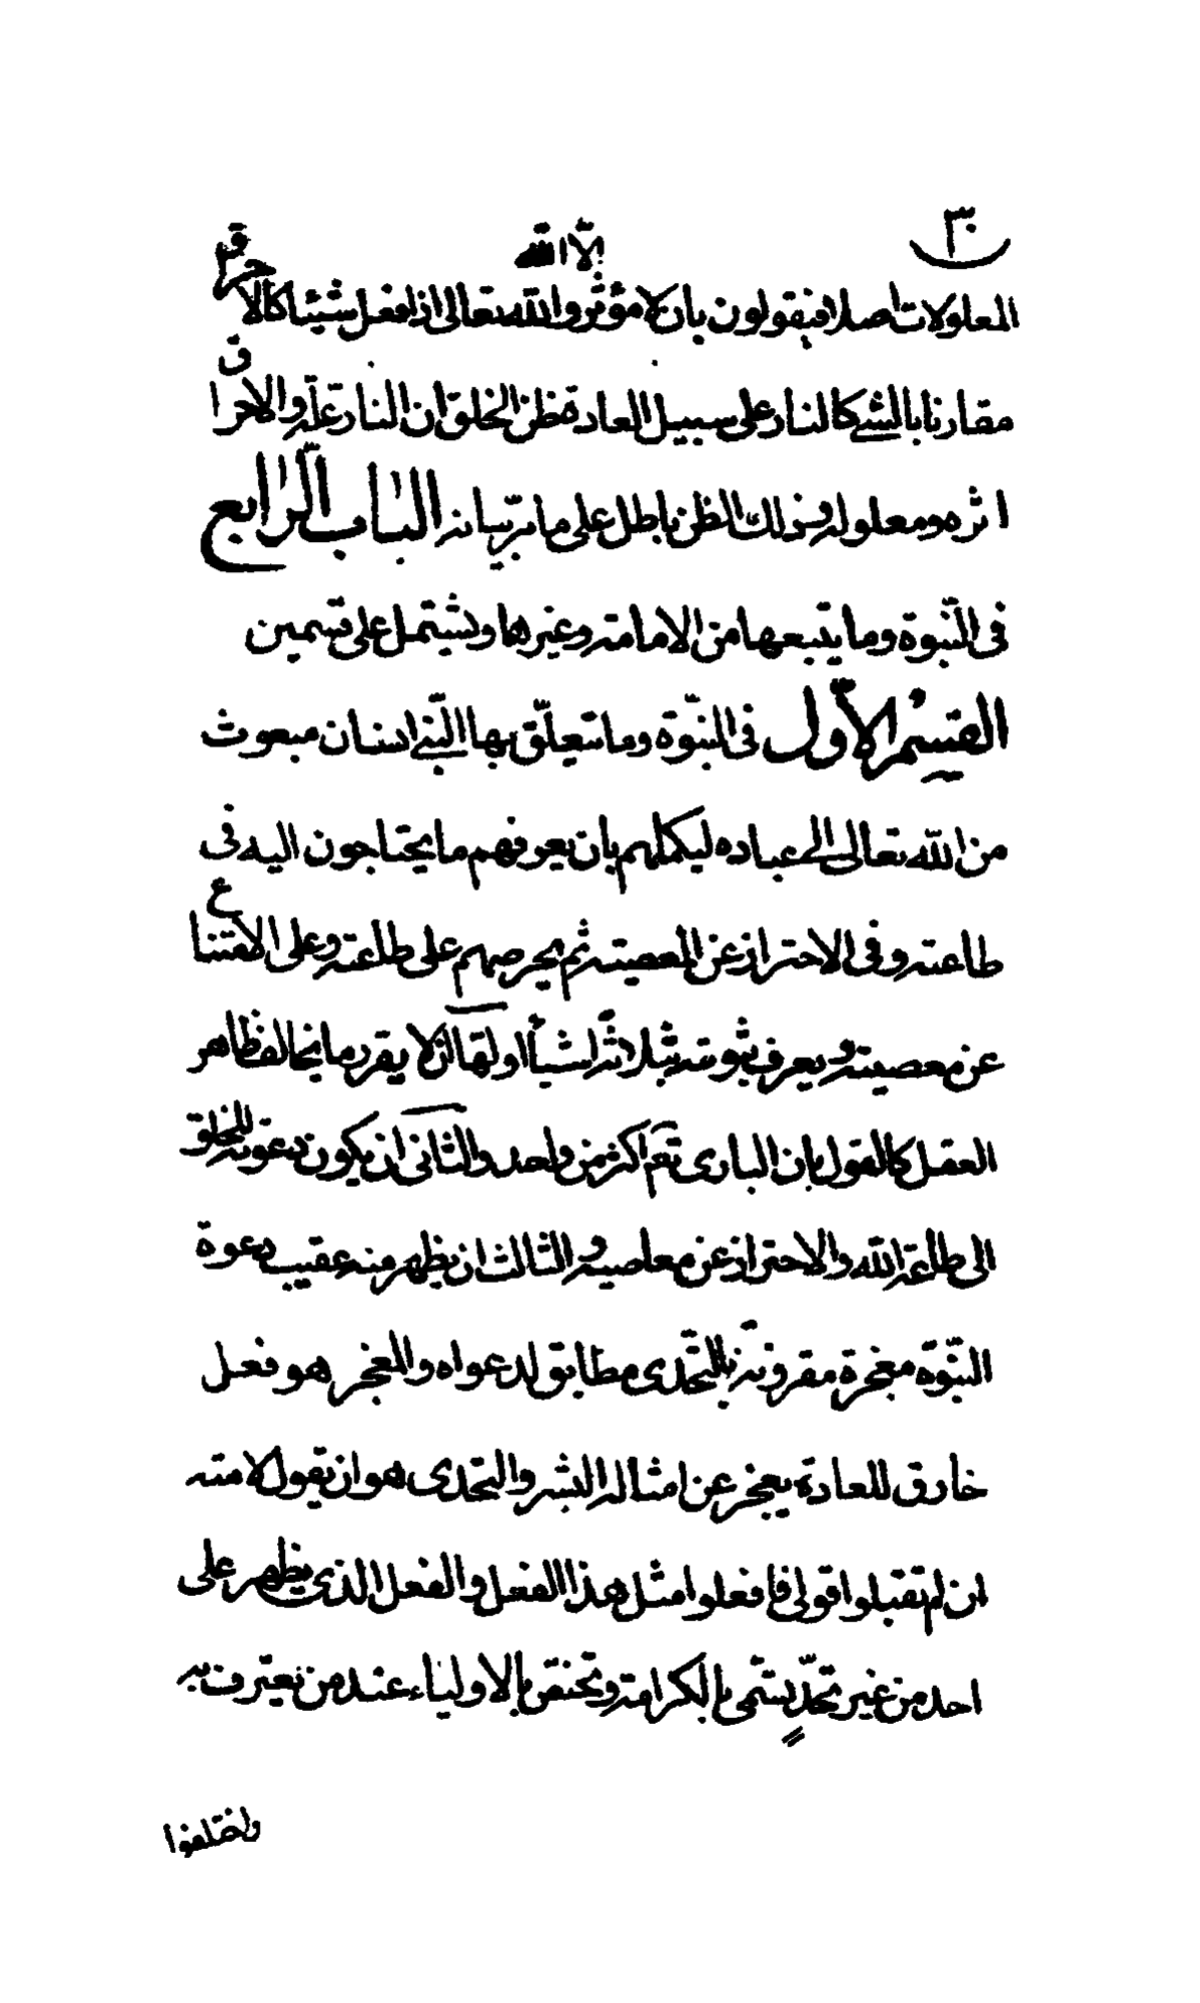 ٣٠
الّا الله
المعلولات اصلا فيقولون بان لا مؤثر والله تعالى اذا فعل شيئا كالاحرٰق
مقارنا بالشئ كالنار على سبيل العادة فظن الخلق ان النار علّة والاحراق
اثره ومعلوله وذلك الظن باطل على ما مرّ بيانه الباب الرّابع
فى النّبوة وما يتبعها من الامامة وغيرها ويشتمل على قسمين
القسم الاوّل فى النبّوة وما يتعلّق بها النّبى انسان مبعوث
من الله تعالى الى عباده ليكملهم بان يعرفهم ما يحتاجون اليه فى
طاعته وفى الاحتراز عن المعصية ثم يحرصهم على طاعته وعلى الامتناع
عن معصيته ويعرف نبوته بثلاثة اشياء اولها ان لا يقرر ما يخالف ظاهر
العقل كالقول بان البارى تعم اكثر من واحد والثانى ان يكون دعوته للخلق
الى طاعة الله والاحتراز عن معاصيه والثالث ان يظهر منه عقيب دعوة
النبّوة معجزة مقرونة بالتّحدى مطابق لدعواه والمعجز هو فعل
خارق للعادة يعجز عن امثاله البشر والتحدى هو ان يقول لامته
ان لم تقبلوا قولى فافعلوا مثل هذا الفعل والفعل الذى يظهر على
احد من غير تحدٍّ يسمّى بالكرامة ويختص بالاولياء عند من يعترف به
واختلفوا